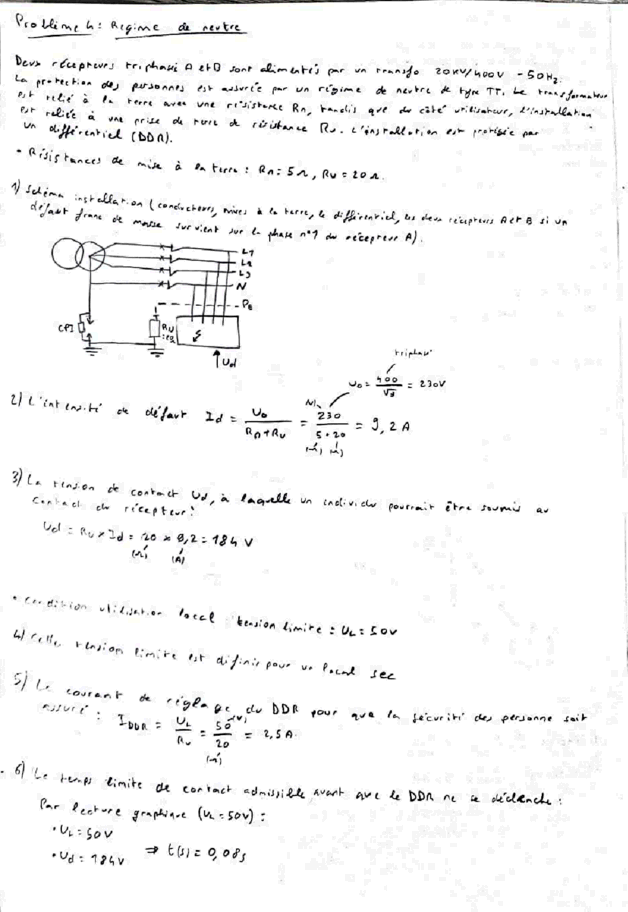 Problème 4 : Régime de neutre
Deux récepteurs triphasé A et B sont alimentés par un transfo 20KV/400V - 50Hz.
La protection des personnes est assurée par un régime de neutre de type TT. Le transformateur
est relié à la terre avec une résistance Rn, tandis que du côté utilisateur, l'installation
est reliée à une prise de terre de résistance Ru. L'installation est protégée par
un différentiel (DDR).
• Résistances de mise à la terre : Rn = 5Ω, Ru = 20Ω.
1) Schéma installation (conducteurs, mises à la terre, le différentiel, les deux récepteurs A et B si un
défaut franc de masse survient sur la phase n°1 du récepteur A).
L1
L2
L3
N
PE
CPI
Ru
Ud
triphasé
U0 = 400/√3 = 230V
2) L'intensité de défaut Id = U0/(Rn+Ru) = 230/(5+20) = 9,2 A
(V)
(Ω) (Ω)
3) La tension de contact Ud, à laquelle un individu pourrait être soumis au
contact du récepteur :
Ud = Ru × Id = 20 × 9,2 = 184 V
(Ω) (A)
• Condition utilisation local tension limite : UL = 50V
4) Cette tension limite est définie pour un local sec
5) Le courant de réglage du DDR pour que la sécurité des personne soit
assuré : IDDR = UL/Ru = 50/20 = 2,5 A.
(V)
(Ω)
6) Le temps limite de contact admissible avant que le DDR ne se déclenche :
Par lecture graphique (UL = 50V) :
• UL = 50V
• Ud = 184V ⇒ t(s) = 0,08s